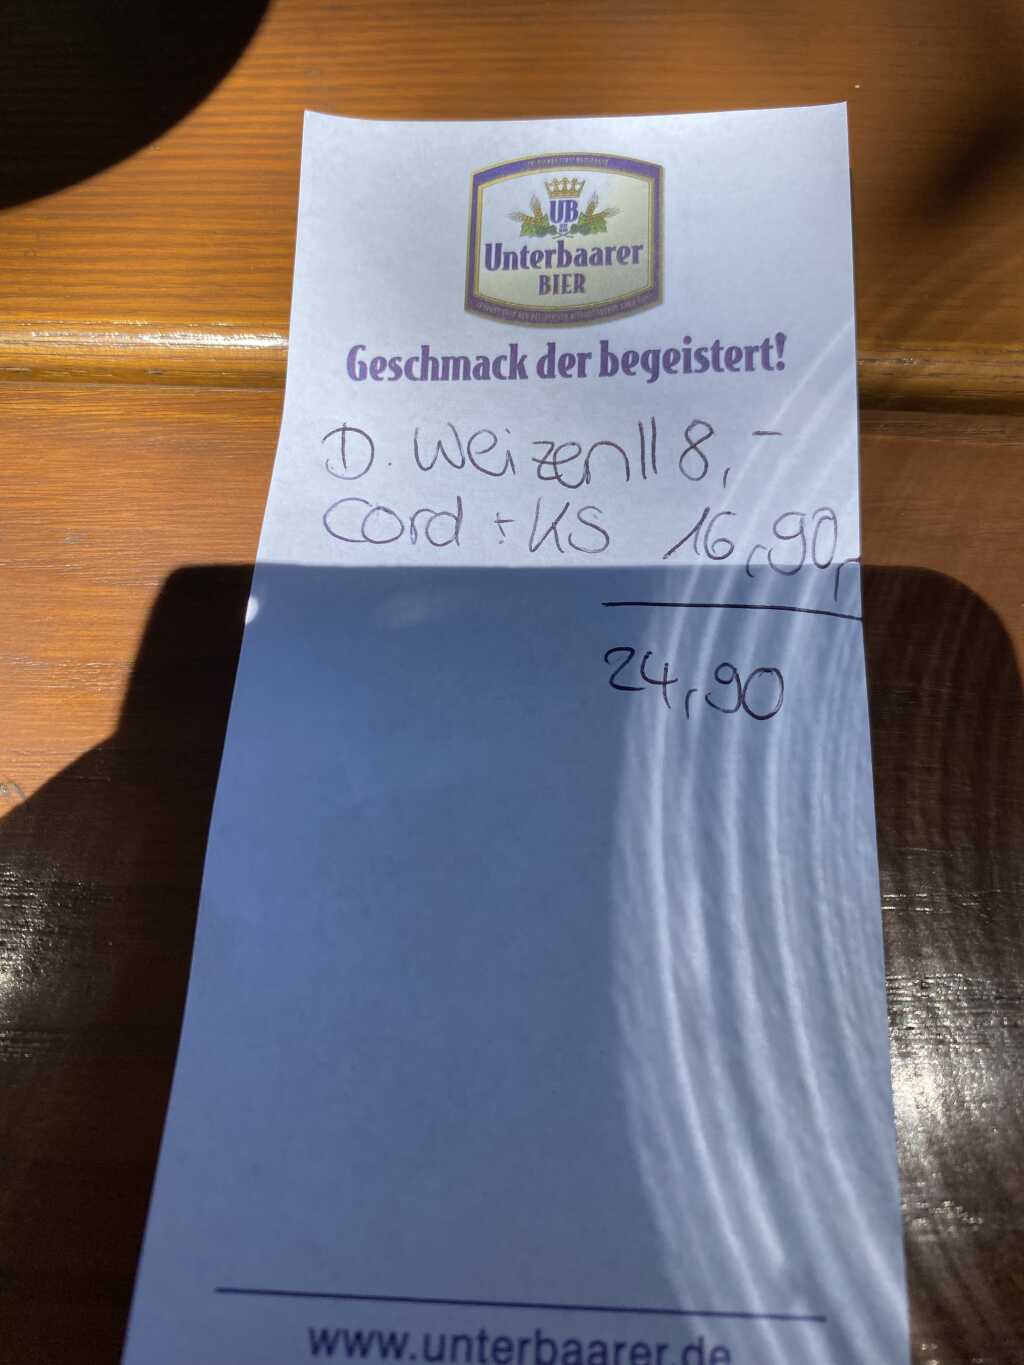 UB
Unterbaarer
BIER
Geschmack der begeistert!
D. Weizen II 8,-
Cord + KS 16,90
24,90
www.unterbaarer.de